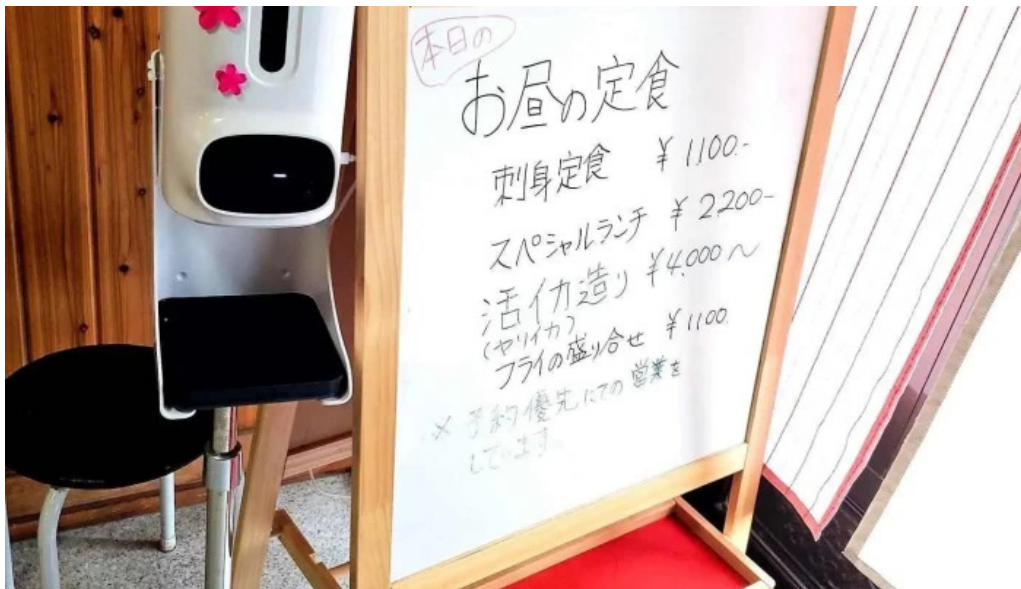 本日の
お昼の定食
刺身定食 ¥1100.-
スペシャルランチ ¥2200-
活イカ造り ¥4,000～
(ヤリイカ)
フライの盛り合せ ¥1100.
※予約優先にての営業を
しています